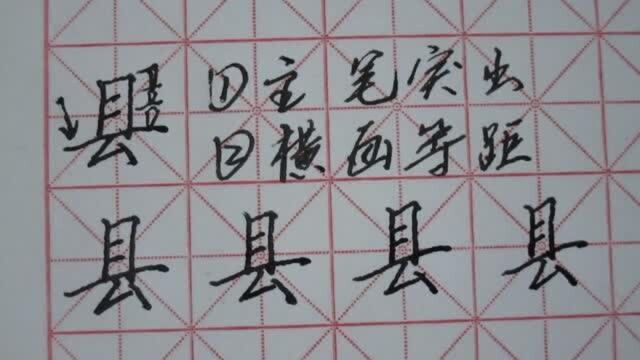 县 ①主笔突出
②横画等距
县 县 县 县